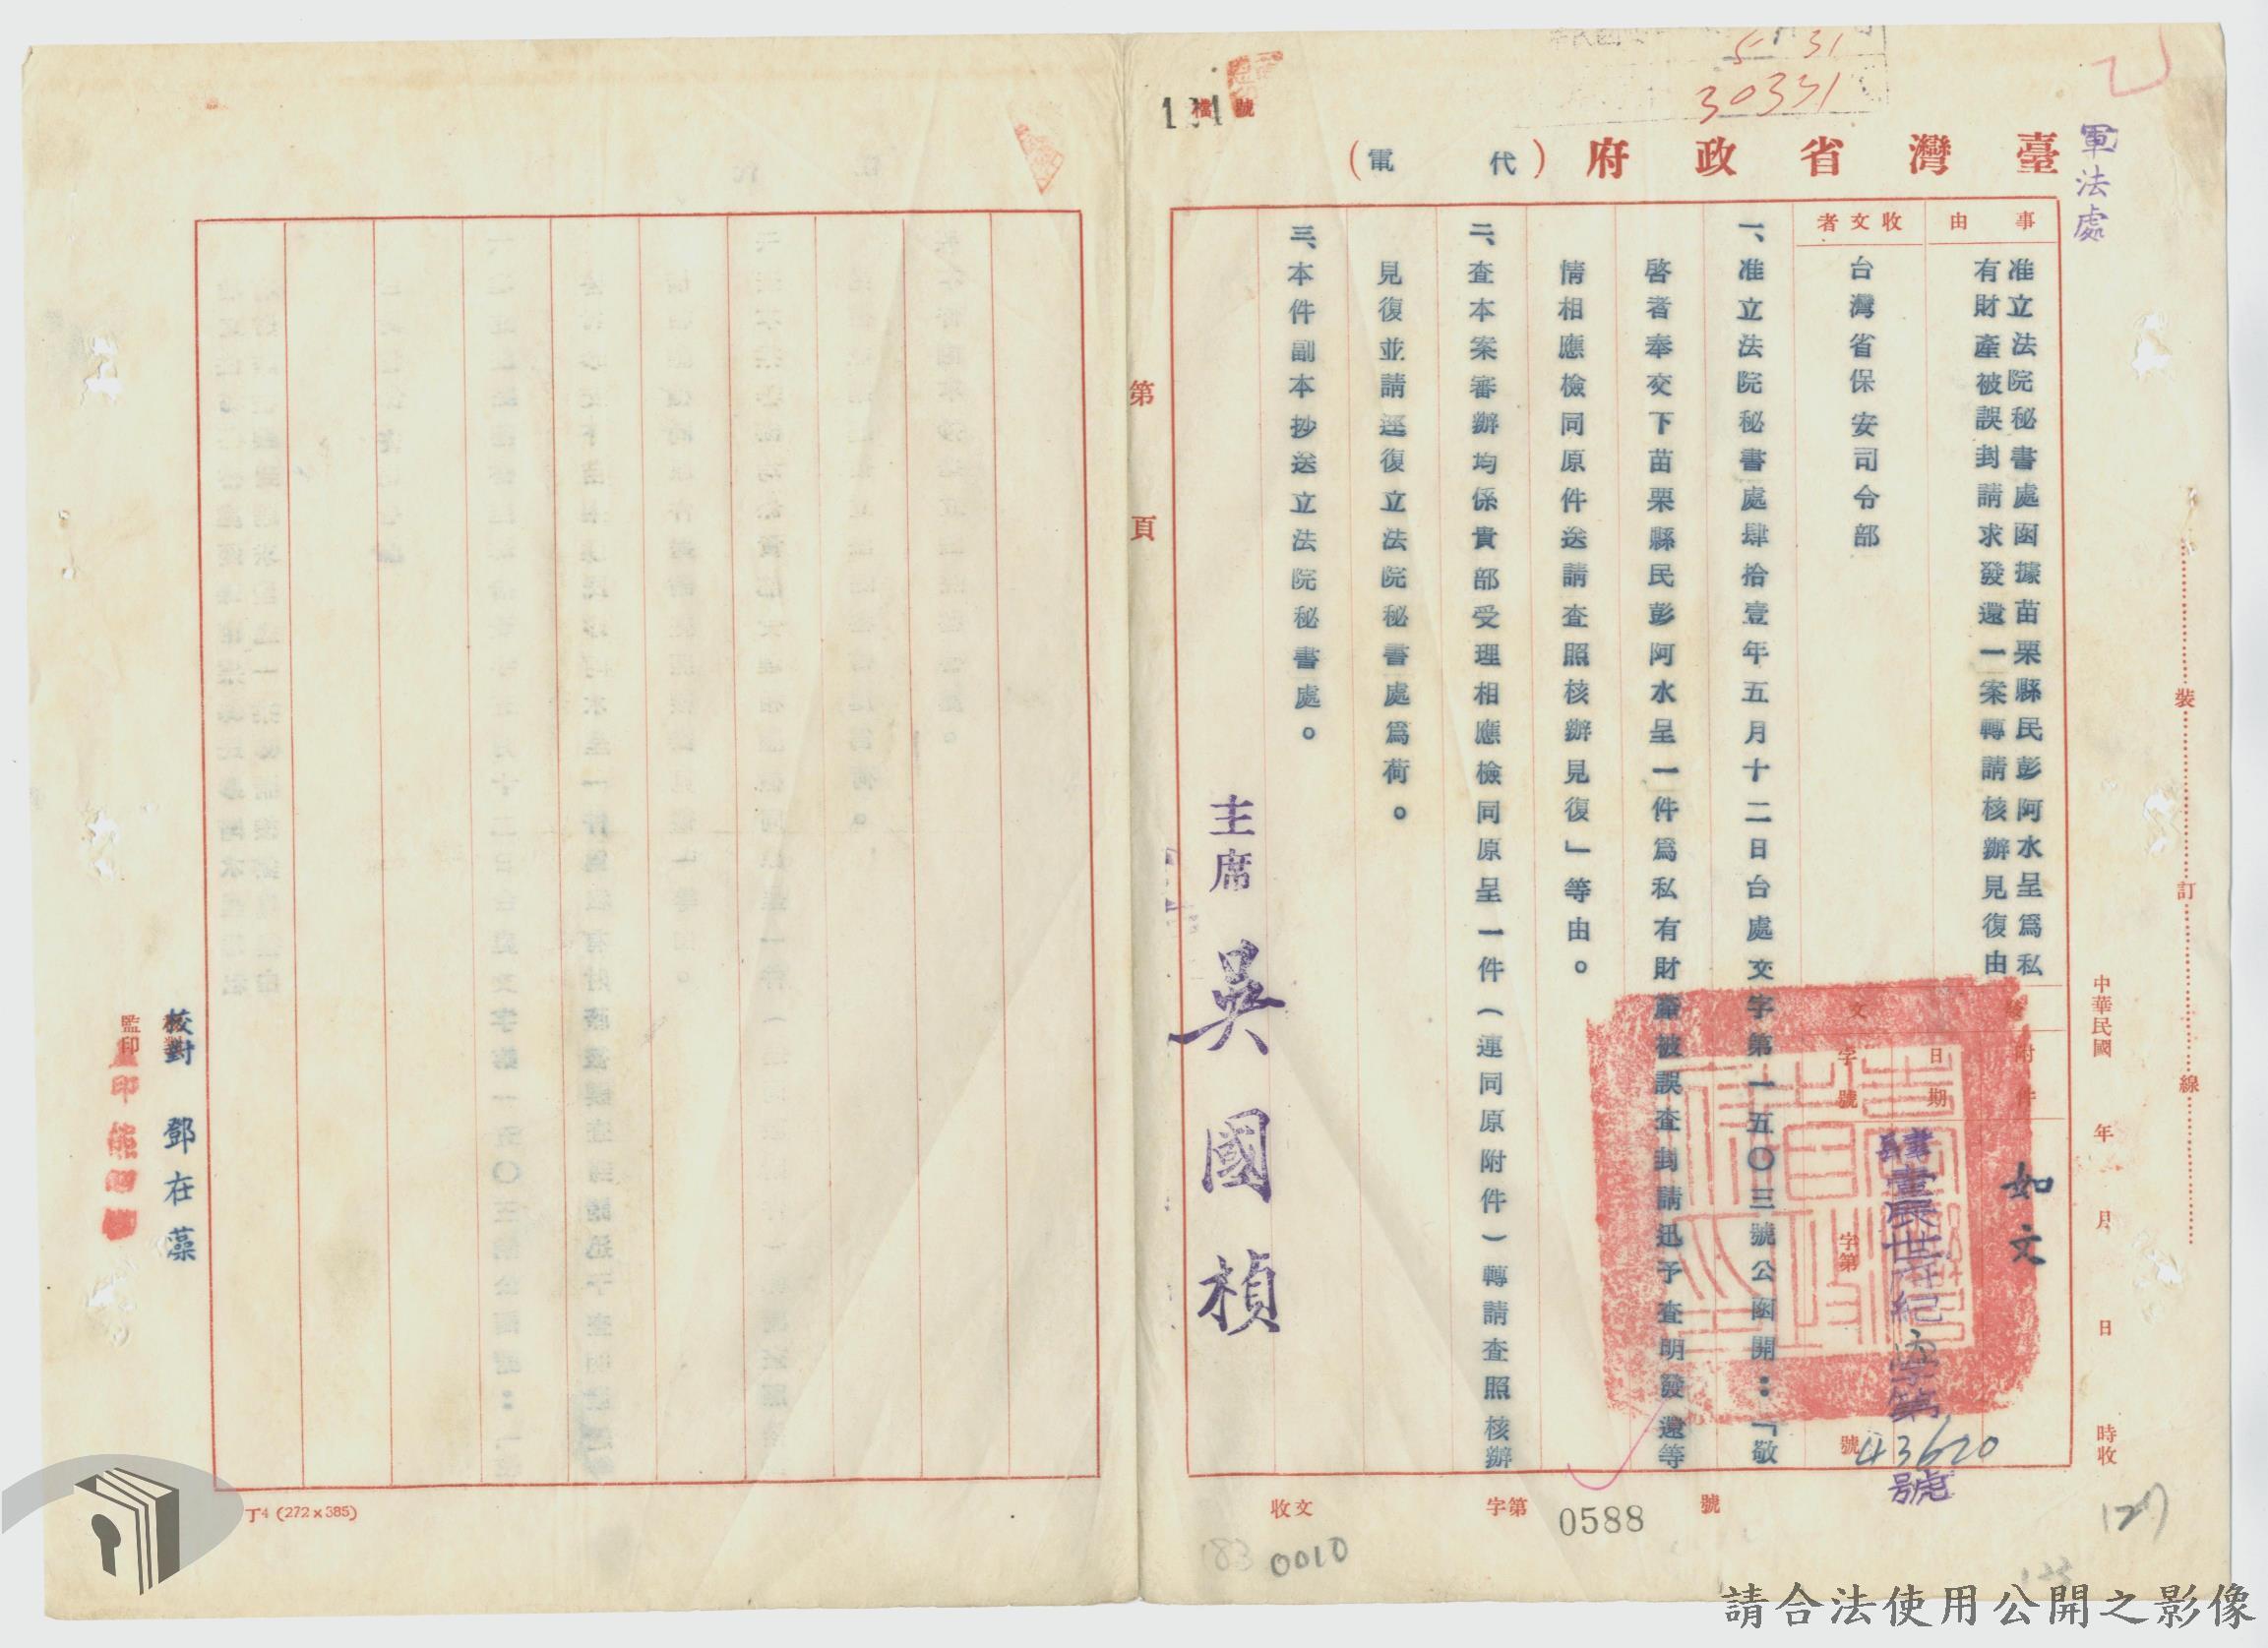 臺灣省政府（代電）
檔號
軍法處
5 31
30331
事由
准立法院秘書處函據苗栗縣民彭阿水呈爲私
有財產被誤封請求發還一案轉請核辦見復由
收文者
台灣省保安司令部
附件
如文
日期
字號
字第
號
肆壹
府紀
字第
43620
號
一、准立法院秘書處肆拾壹年五月十二日台處文字第一五〇三號公函開：「敬
啓者奉交下苗栗縣民彭阿水呈一件爲私有財產被誤查封請迅予查明發還等
情相應檢同原件送請查照核辦見復」等由。
二、查本案審辦均係貴部受理相應檢同原呈一件（連同原附件）轉請查照核辦
見復並請逕復立法院秘書處爲荷。
三、本件副本抄送立法院秘書處。
主席 吳國楨
第 頁
裝 訂 線
中華民國 年 月 日 時收
收文 字第 0588 號
0010
183
127
校對 鄧在藻
監印
丁4 (272×385)
請合法使用公開之影像